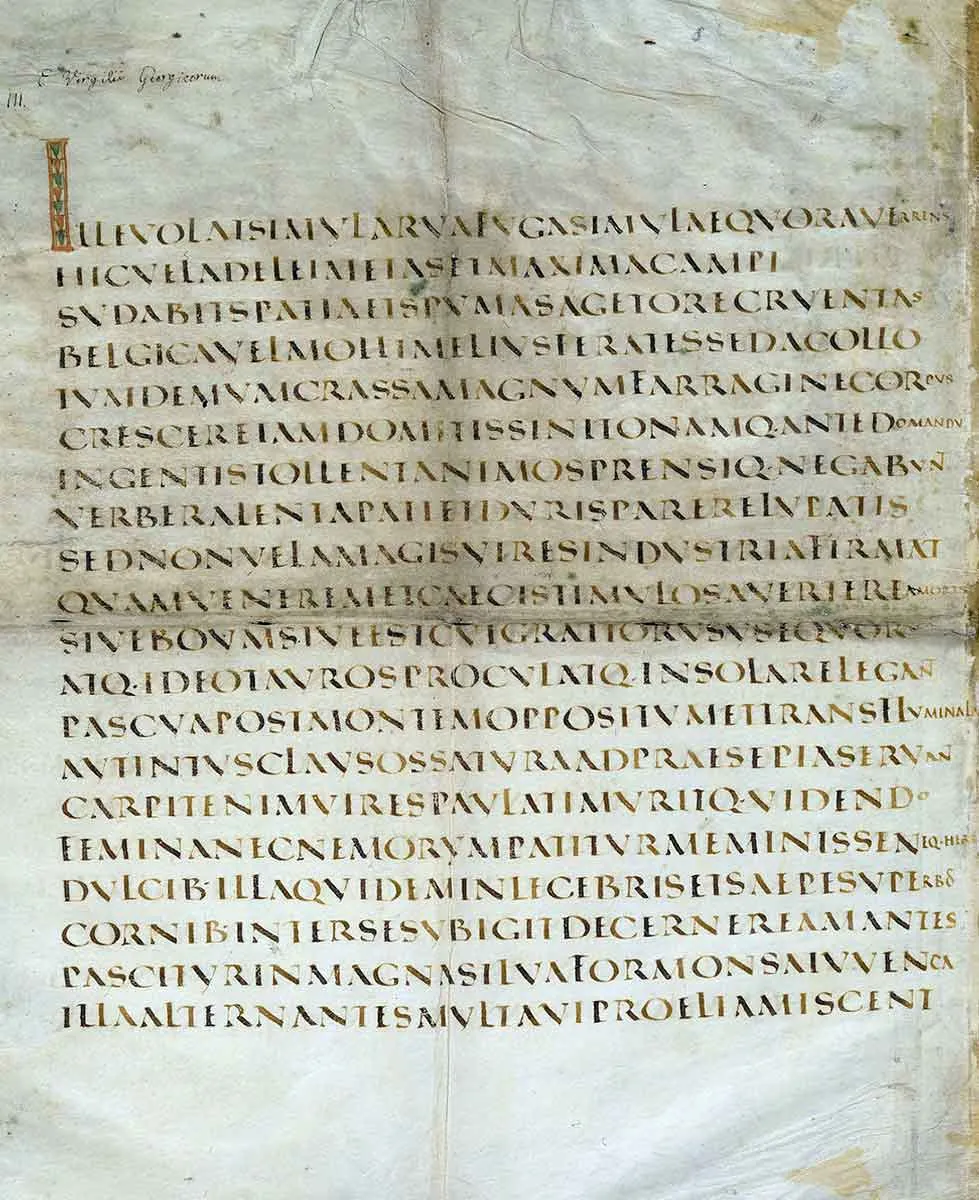 E Virgilii Georgicorum
III.
ILLEVOLATSIMVLARVAFVGASIMVLAEQVORAVERRENS
HICVELADELEIMETASETMAXIMACAMPI
SVDABITSPATIAETSPVMASAGETORECRVENTAS
BELGICAVELMOLLIMELIVSFERATESSEDACOLLO
TVMDEMVMCRASSAMAGNVMFARRAGINECORPVS
CRESCEREIAMDOMITISSINITONAMQ·ANTEDOMANDV
INGENTISTOLLENTANIMOSPRENSIQ·NEGABVN̄
VERBERALENTAPATIETDVRISPARERELVPATIS
SEDNONVLLAMAGISVIRESINDVSTRIAFIRMAT
QVAMVENEREMETCAECISTIMVLOSAVERTEREAMORIS
SIVEBOVMSIVEESTCVIGRATIORVSVSEQVOR
ATQ·IDEOTAVROSPROCVLATQ·INSOLARELEGAN̄
PASCVAPOSTMONTEMOPPOSITVMETTRANSFLVMINALA
AVTINTVSCLAVSOSSATVRAADPRAESEPIASERVAN̄
CARPITENIMVIRESPAVLATIMVRITQ·VIDENDO
FEMINANECNEMORVMPATITVRMEMINISSENEQ·HER
DVLCIB·ILLAQVIDEMINLECEBRISETSAEPESVPERBO
CORNIBINTERSESVBIGITDECERNEREAMANTES
PASCITVRINMAGNASILVAFORMONSAIVVENCA
ILLAALTERNANTESMVLTAVIPROELIAMISCENT